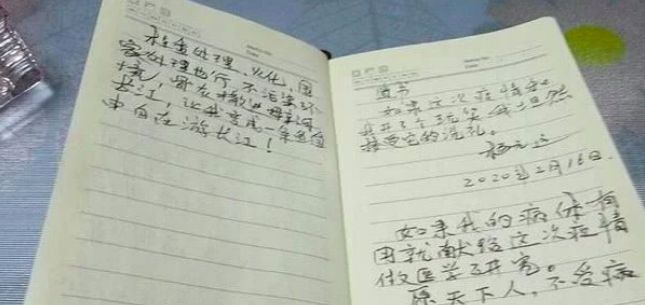 处理、火化，国
家处理也行，不污染环
境，骨灰撒进母亲河
长江，让我变成一条鱼自
由自在游长江！
遗书
如果这次疫情和
我开了个玩笑 我坦然
接受它的洗礼。
2020年2月16日.
如果我的病体有
用就献给这次疫情
做医学研究。
愿天下人，不受病